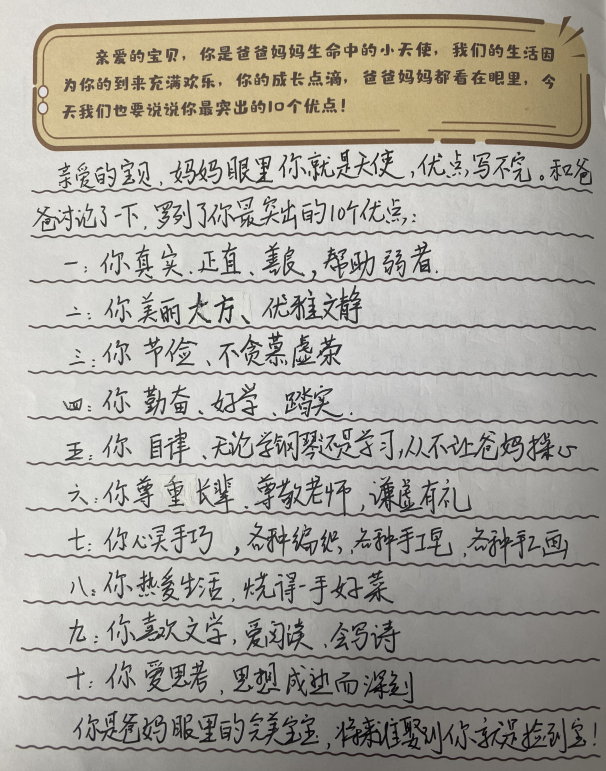 亲爱的宝贝，你是爸爸妈妈生命中的小天使，我们的生活因
为你的到来充满欢乐，你的成长点滴，爸爸妈妈都看在眼里，今
天我们也要说说你最突出的10个优点！
亲爱的宝贝，妈妈眼里你就是天使，优点写不完。和爸
爸讨论了一下，罗列了你最突出的10个优点：
一：你真实、正直、善良，帮助弱者.
二：你美丽大方、优雅文静
三：你节俭、不贪慕虚荣
四：你勤奋、好学、踏实.
五：你自律、无论学钢琴还是学习，从不让爸妈操心
六：你尊重长辈、尊敬老师，谦虚有礼
七：你心灵手巧，各种编织，各种手工，各种手工画
八：你热爱生活，烧得一手好菜
九：你喜欢文学，爱阅读、会写诗
十：你爱思考，思想成熟而深刻
你是爸妈眼里的完美宝宝，将来谁娶到你就是捡到宝！